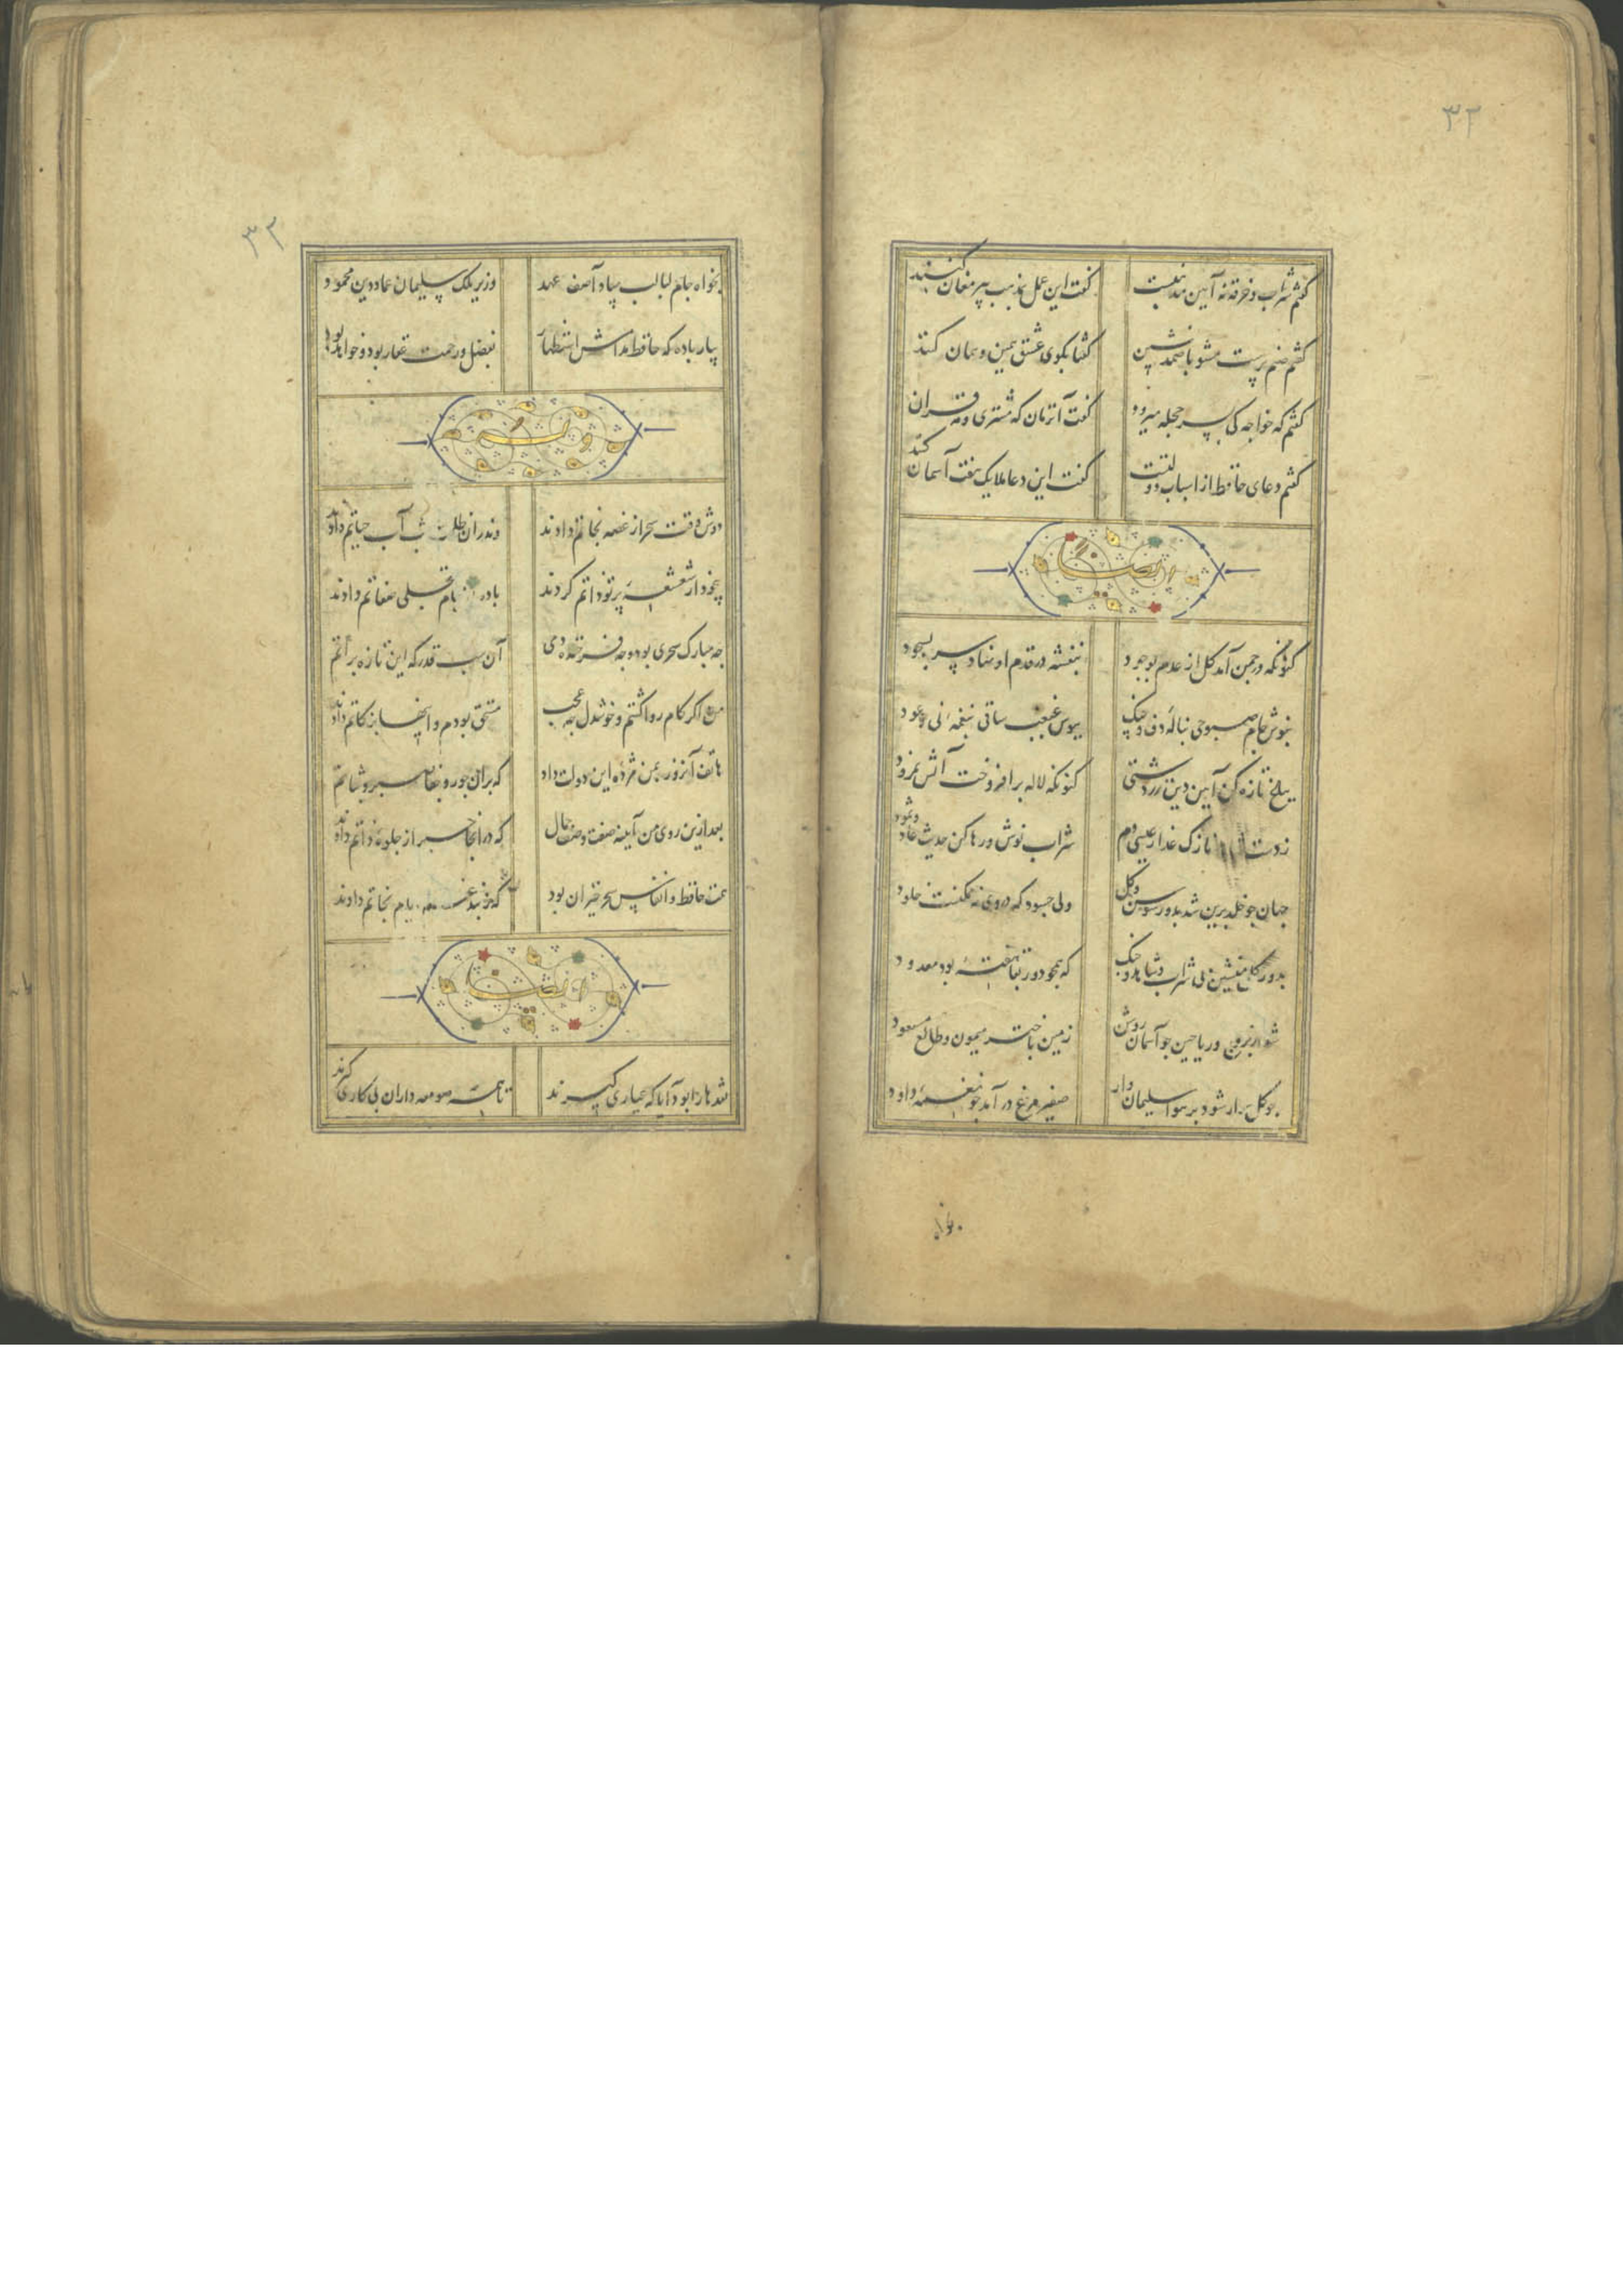 ۳۲
گفتم شراب و خرقه نه آیین مذهبست گفت این عمل بمذهب پیر مغان کنند
گفتم صنم پرست مشو با صمد نشین گفتا بکوی عشق همین و همان کنند
گفتم که خواجه کی بسر حجله میرود گفت آنزمان که مشتری و مه قران کنند
گفتم دعای حافظ از اسباب دولتست گفت این دعا ملایک هفت آسمان
ایضا
کنونکه در چمن آمد گل از عدم بوجود بنفشه در قدم او نهاد سر بسجود
بنوش جام صبوحی بناله دف و چنگ ببوس غبغب ساقی بنغمه نی و عود
بباغ تازه کن آیین دین زردشتی کنونکه لاله برافروخت آتش نمرود
ز دست نازک عذار عیسی دم شراب نوش و رها کن حدیث عاد و ثمود
جهان چو خلد برین شد بدور سوسن و گل ولی چه سود که در وی نه ممکنست خلود
بدور گل منشین بی شراب و شاهد و چنگ که همچو دور بقا هفته بود معدود
شد از بروج ریاحین چو آسمان روشن زمین باختر میمون و طالع مسعود
چو گل سوار شود بر هوا سلیمان وار صفیر مرغ درآمد چو نغمه داود
۳۲
بخواه جام لبالب بیاد آصف عهد وزیر ملک سلیمان عماد دین محمود
بیار باده که حافظ مدامش استظهار بفضل و رحمت غفار بود و خواهد بود
وله
دوش وقت سحر از غصه نجاتم دادند وندران ظلمت شب آب حیاتم دادند
بیخود از شعشعه پرتو ذاتم کردند باده از جام تجلی صفاتم دادند
چه مبارک سحری بود و چه فرخنده دمی آن شب قدر که این تازه براتم
من اگر کام روا گشتم و خوشدل چه عجب مستحق بودم و اینها بزکاتم دادند
هاتف آنروز بمن مژده این دولت داد که بران جور و جفا صبر و ثباتم
بعد ازین روی من آیینه صفت وصف جمال که در آنجا خبر از جلوه ذاتم دادند
همت حافظ و انفاس سحر خیزان بود که ز بند غم ایام نجاتم دادند
ایضا
نقدها را بود آیا که عیاری گیرند تا همه صومعه داران پی کاری گیرند